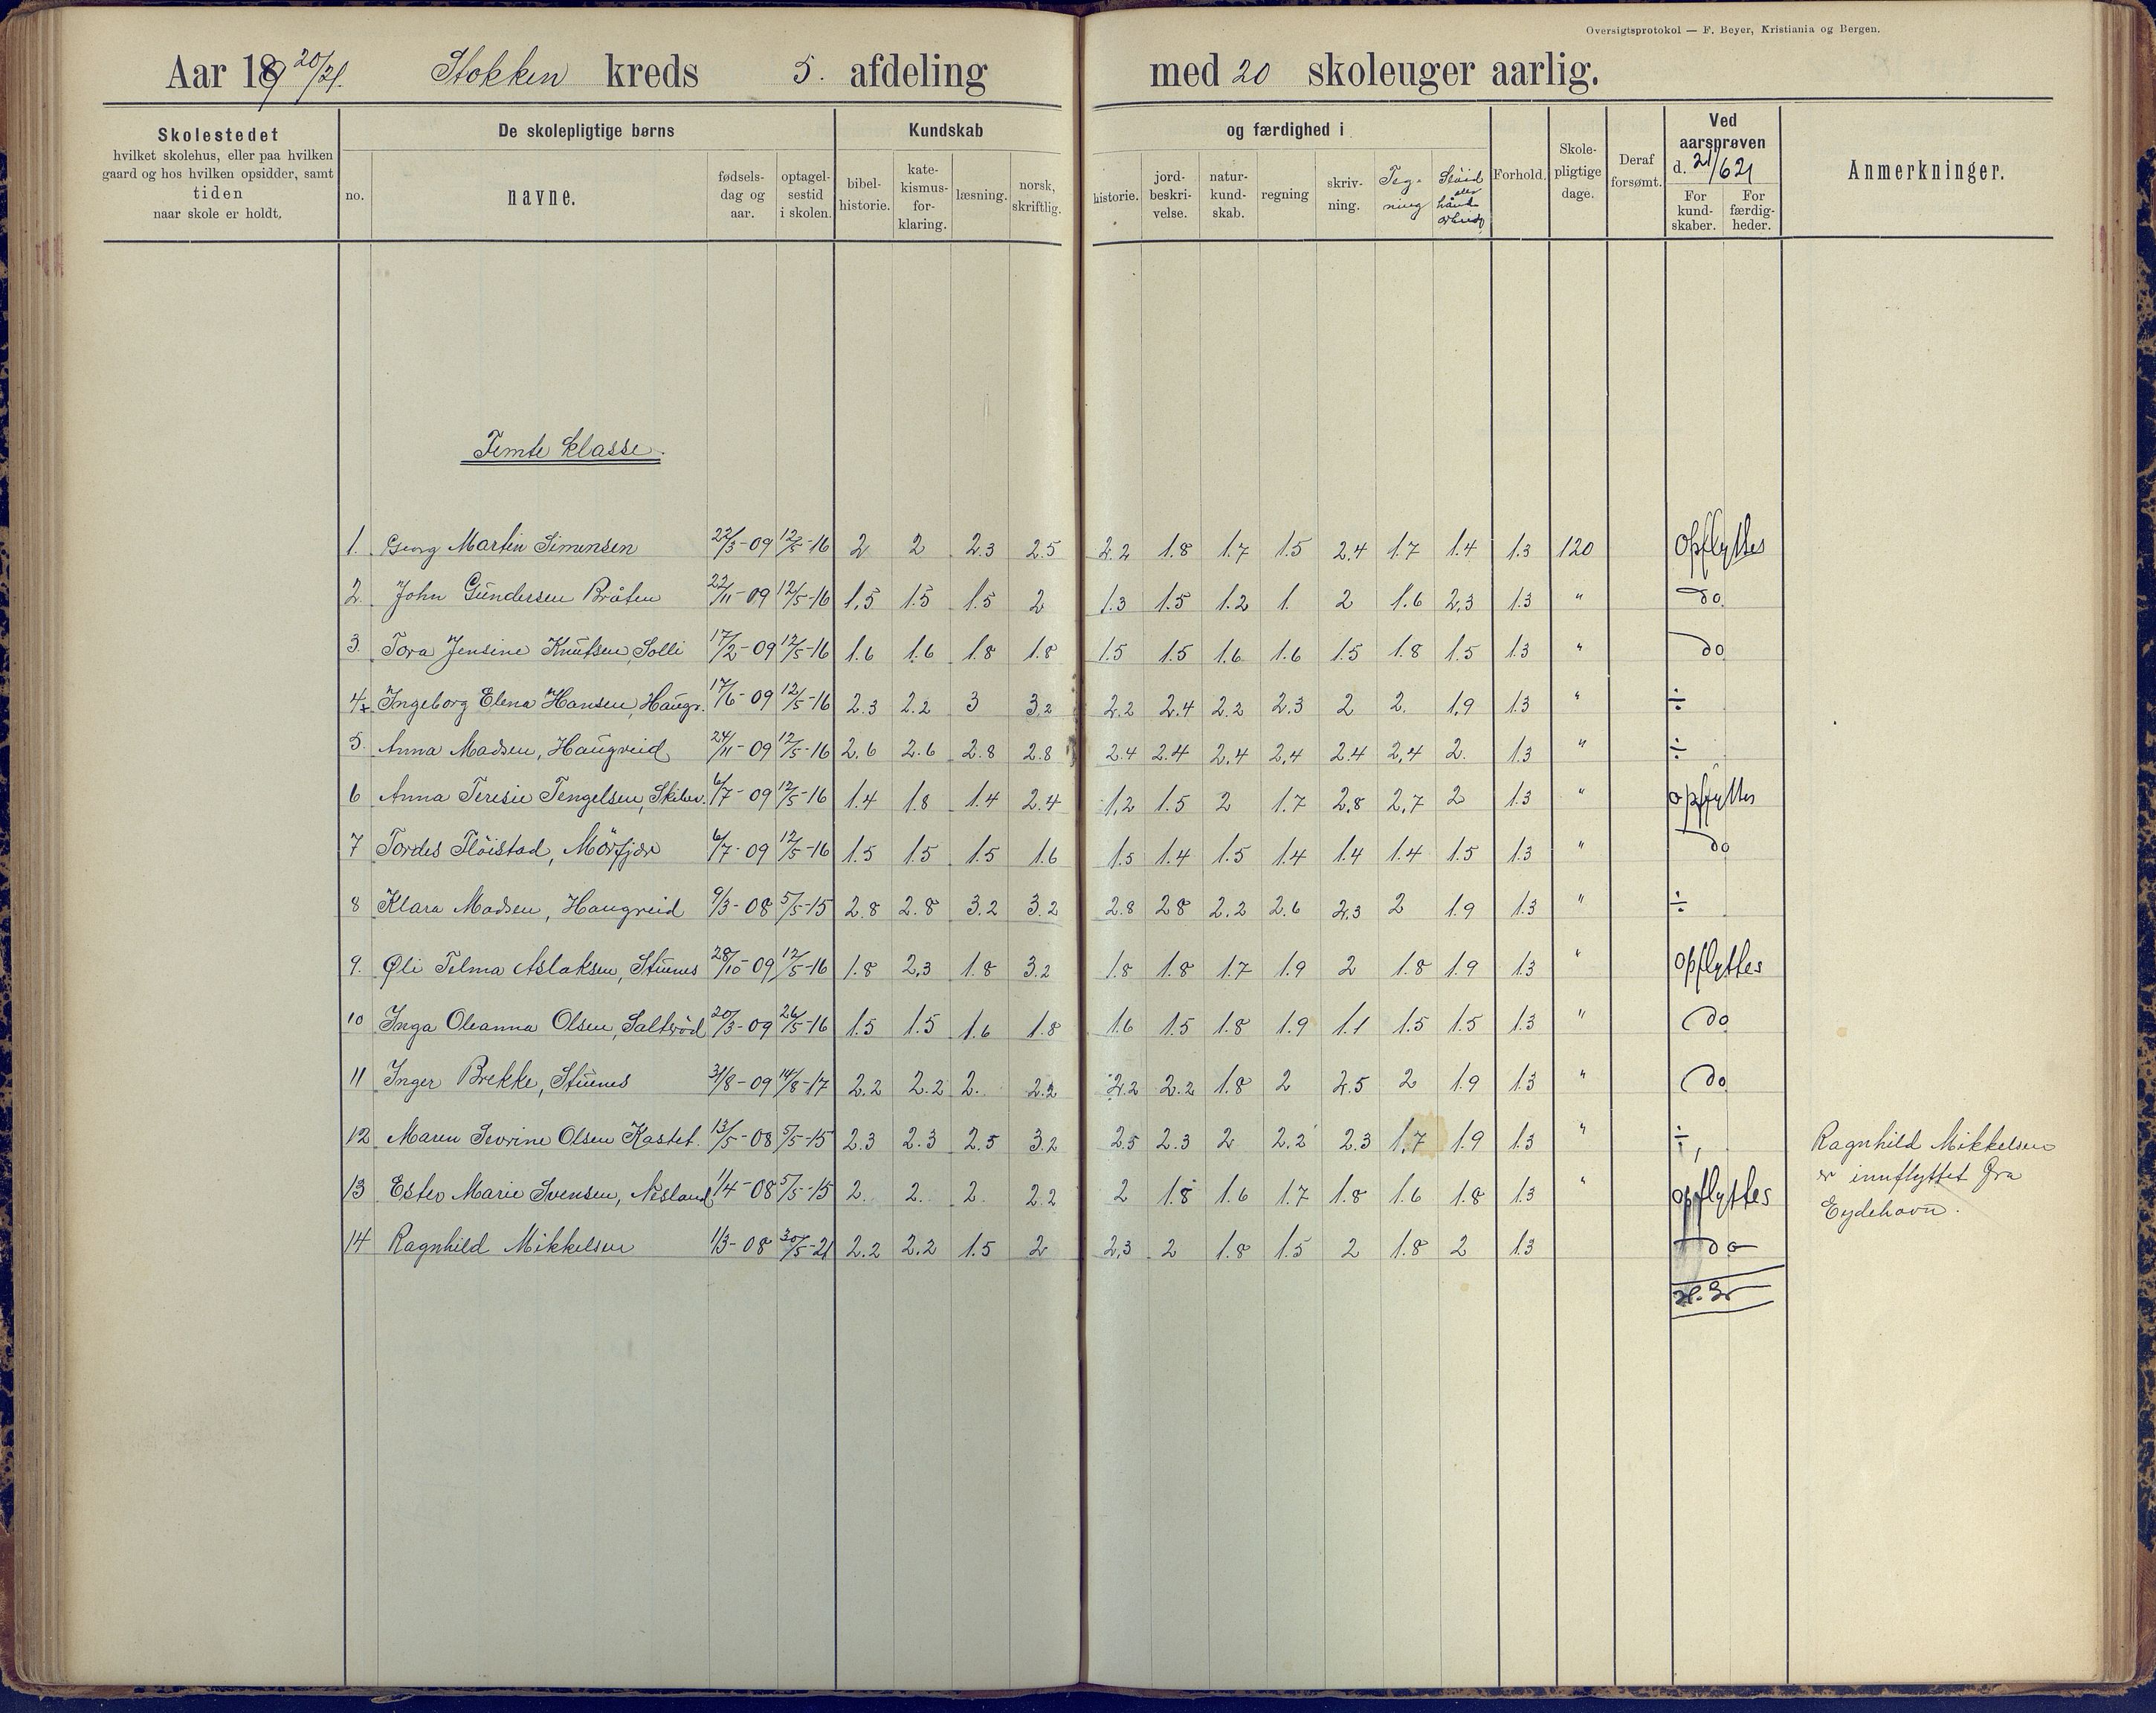 Oversigtsprotokol — F. Beyer, Kristiania og Bergen.
Aar 1920/21. Stokken kreds 5. afdeling med 20 skoleuger aarlig.
Skolestedet
hvilket skolehus, eller paa hvilken
gaard og hos hvilken opsidder, samt
tiden
naar skole er holdt,
De skolepligtige børns
no. navne. fødsels-dag og aar. optagel-sestid i skolen.
Kundskab og færdighed i
bibel-historie. kate-kismus-for-klaring. læsning. norsk, skriftlig. historie. jord-beskri-velse. natur-kund-skab. regning skriv-ning. Teg-ning Sløid eller hånd-arbeide
Forhold. Skole-pligtige dage. Deraf forsømt.
Ved aarsprøven d. 21/6 21
For kund-skaber. For færdig-heder.
Anmerkninger.
Femte klasse.
1. Georg Martin Simonsen 22/3-09 12/5-16 2 2 2.3 2.5 2.2 1.8 1.7 1.5 2.4 1.7 1.4 1.3 120 Opflyttes
2. John Gundersen Bråten 22/11-09 12/5-16 1.5 1.5 1.5 2 1.3 1.5 1.2 1. 2 1.6 2.3 1.3 " do.
3. Tora Jensine Knutsen, Solli 17/2-09 12/5-16 1.6 1.6 1.8 1.8 1.5 1.5 1.6 1.6 1.5 1.8 1.5 1.3 " do
4x Ingeborg Elena Hansen, Haugr. 17/6-09 12/5-16 2.3 2.2 3 3.2 2.2 2.4 2.2 2.3 2 2. 1.9 1.3 " ÷
5. Anna Madsen, Haugreid 24/11-09 12/5-16 2.6 2.6 2.8 2.8 2.4 2.4 2.4 2.4 2.4 2.4 2. 1.3 " ÷
6 Anna Teresie Tengelsen, 6/7-09 12/5-16 1.4 1.8 1.4 2.4 1.2 1.5 2 1.7 2.8 2.7 2 1.3 " opflyttes
7 Tordis Fløistad, Mørfjær 6/7-09 12/5-16 1.5 1.5 1.5 1.6 1.5 1.4 1.5 1.4 1.4 1.4 1.5 1.3 " do
8 Klara Madsen, Haugreid 9/3-08 5/5-15 2.8 2.8 3.2 3.2 2.8 2.8 2.2 2.6 2.3 2 1.9 1.3 " ÷
9. Øli Telma Aslaksen, Stuenes 28/10-09 12/5-16 1.8 2.3 1.8 3.2 1.8 1.8 1.7 1.9 2 1.8 1.9 1.3 " opflyttes
10 Inga Oleanna Olsen, Saltrød 20/3-09 26/5-16 1.5 1.5 1.6 1.8 1.6 1.5 1.8 1.9 1.1 1.5 1.5 1.3 " do
11 Inger Brekke, Stuenes 31/8-09 14/8-17 2.2 2.2 2. 2.2 2.2 2.2 1.8 2 2.5 2 1.9 1.3 " do
12 Maren Sevrine Olsen Kastet. 13/5-08 5/5-15 2.3 2.3 2.5 3.2 2.5 2.3 2 2.2 2.3 1.7 1.9 1.3 " ÷
13 Ester Marie Svensen, Nesland 1/4-08 5/5-15 2. 2. 2. 2.2 2 1.8 1.6 1.7 1.8 1.6 1.8 1.3 " opflyttes
14 Ragnhild Mikkelsen 1/3-08 30/5-21 2.2 2.2 1.5 2 2.3 2 1.8 1.5 2 1.8 2 1.3 do
Ragnhild Mikkelsen
er innflyttet fra
Eydehavn.